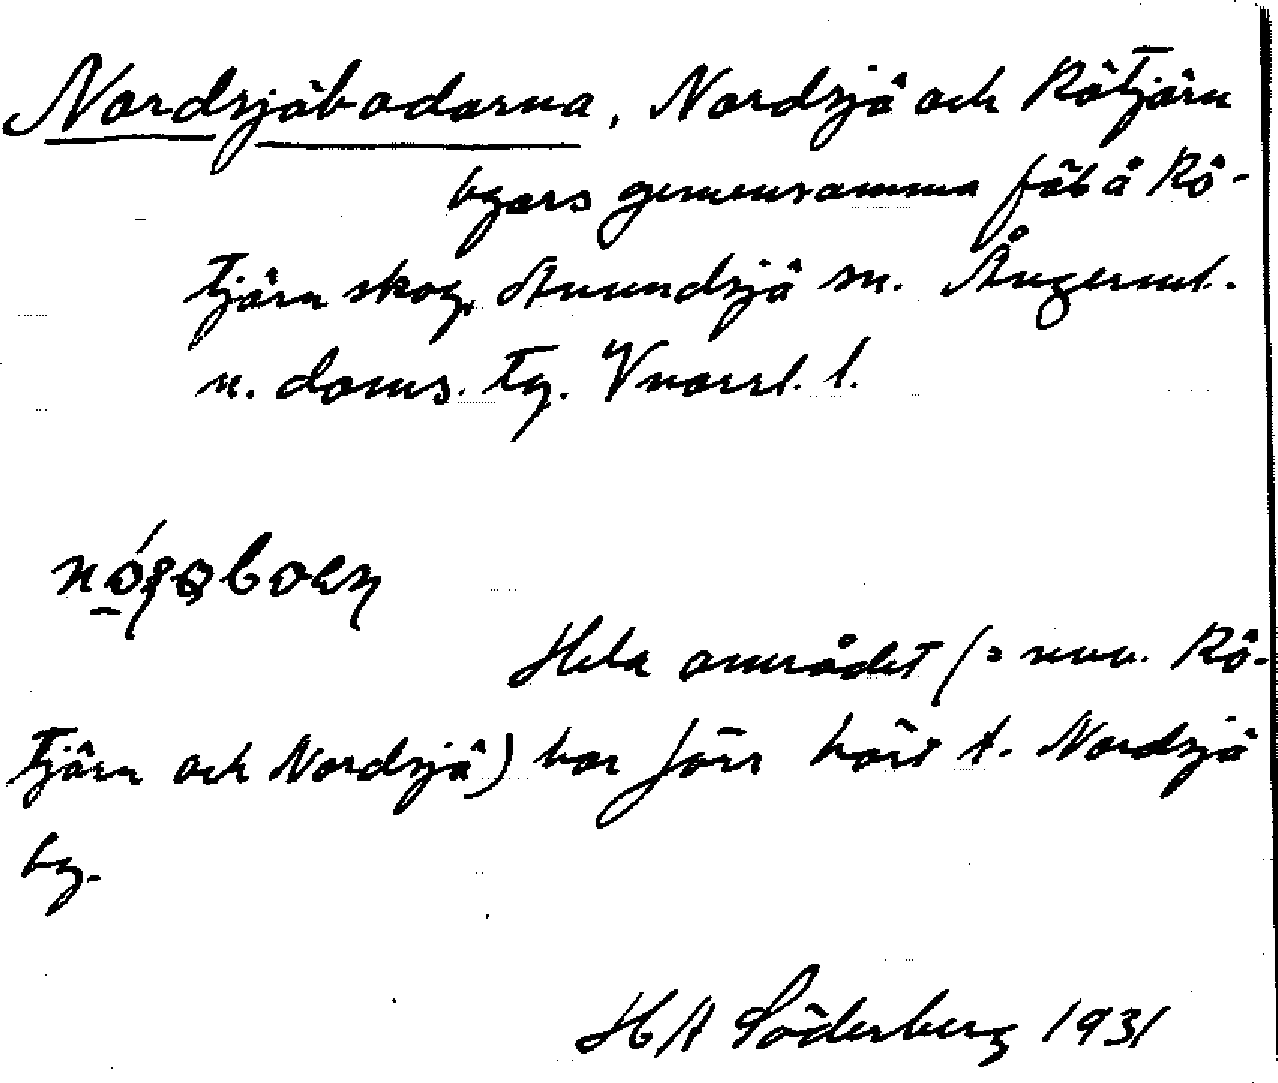 Nordsjöbodarna, Nordsjö och Rötjärn
byars gemensamma fäb å Rö-
tjärn skog, Anundsjö sn. Ångerml.
n. doms. tg. Vnorrl. l.
Hela området (= nuv. Rö-
tjärn och Nordsjö) har förr hört t. Nordsjö
by.
HA Söderberg 1931